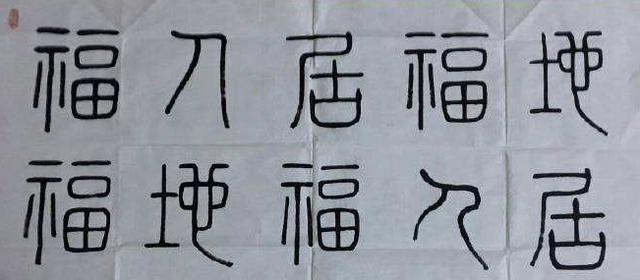 福人居福地
福地福人居